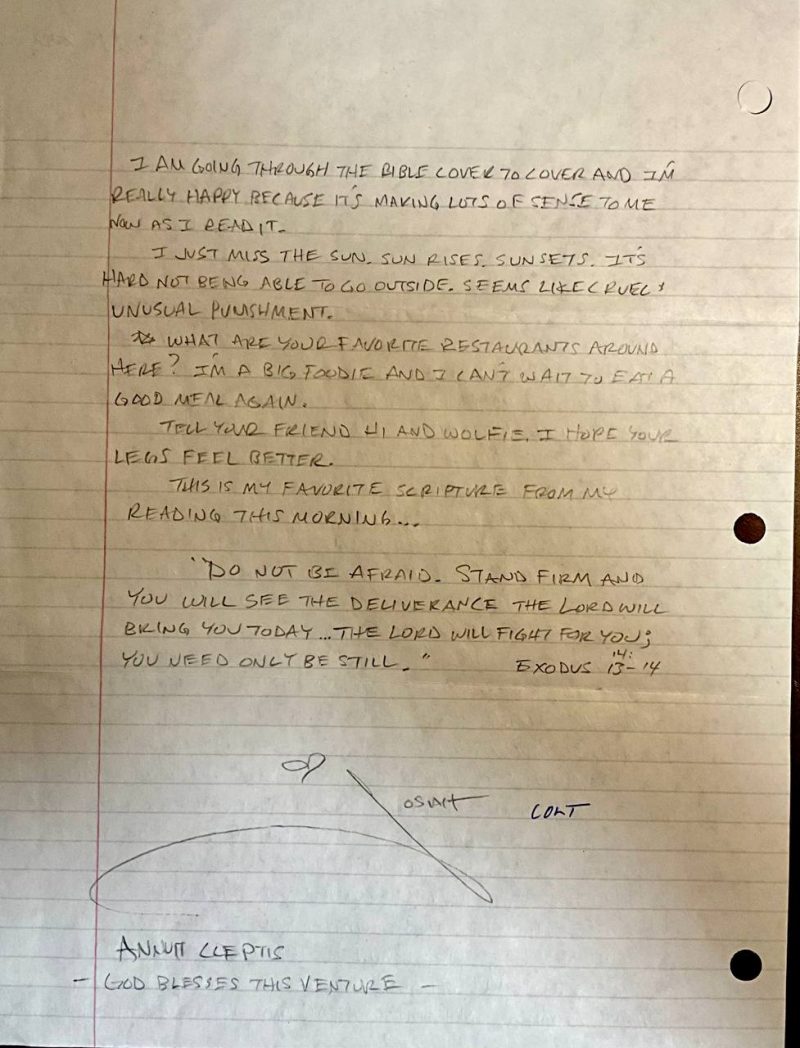 I AM GOING THROUGH THE BIBLE COVER TO COVER AND I'M
REALLY HAPPY BECAUSE IT'S MAKING LOTS OF SENSE TO ME
NOW AS I READ IT.
I JUST MISS THE SUN. SUN RISES. SUNSETS. IT'S
HARD NOT BEING ABLE TO GO OUTSIDE. SEEMS LIKE CRUEL &
UNUSUAL PUNISHMENT.
WHAT ARE YOUR FAVORITE RESTAURANTS AROUND
HERE? I'M A BIG FOODIE AND I CAN'T WAIT TO EAT A
GOOD MEAL AGAIN.
TELL YOUR FRIEND HI AND WOLFIE. I HOPE YOUR
LEGS FEEL BETTER.
THIS IS MY FAVORITE SCRIPTURE FROM MY
READING THIS MORNING...
"DO NOT BE AFRAID. STAND FIRM AND
YOU WILL SEE THE DELIVERANCE THE LORD WILL
BRING YOU TODAY... THE LORD WILL FIGHT FOR YOU;
YOU NEED ONLY BE STILL." EXODUS 14:13-14
COLT
- GOD BLESSES THIS VENTURE -